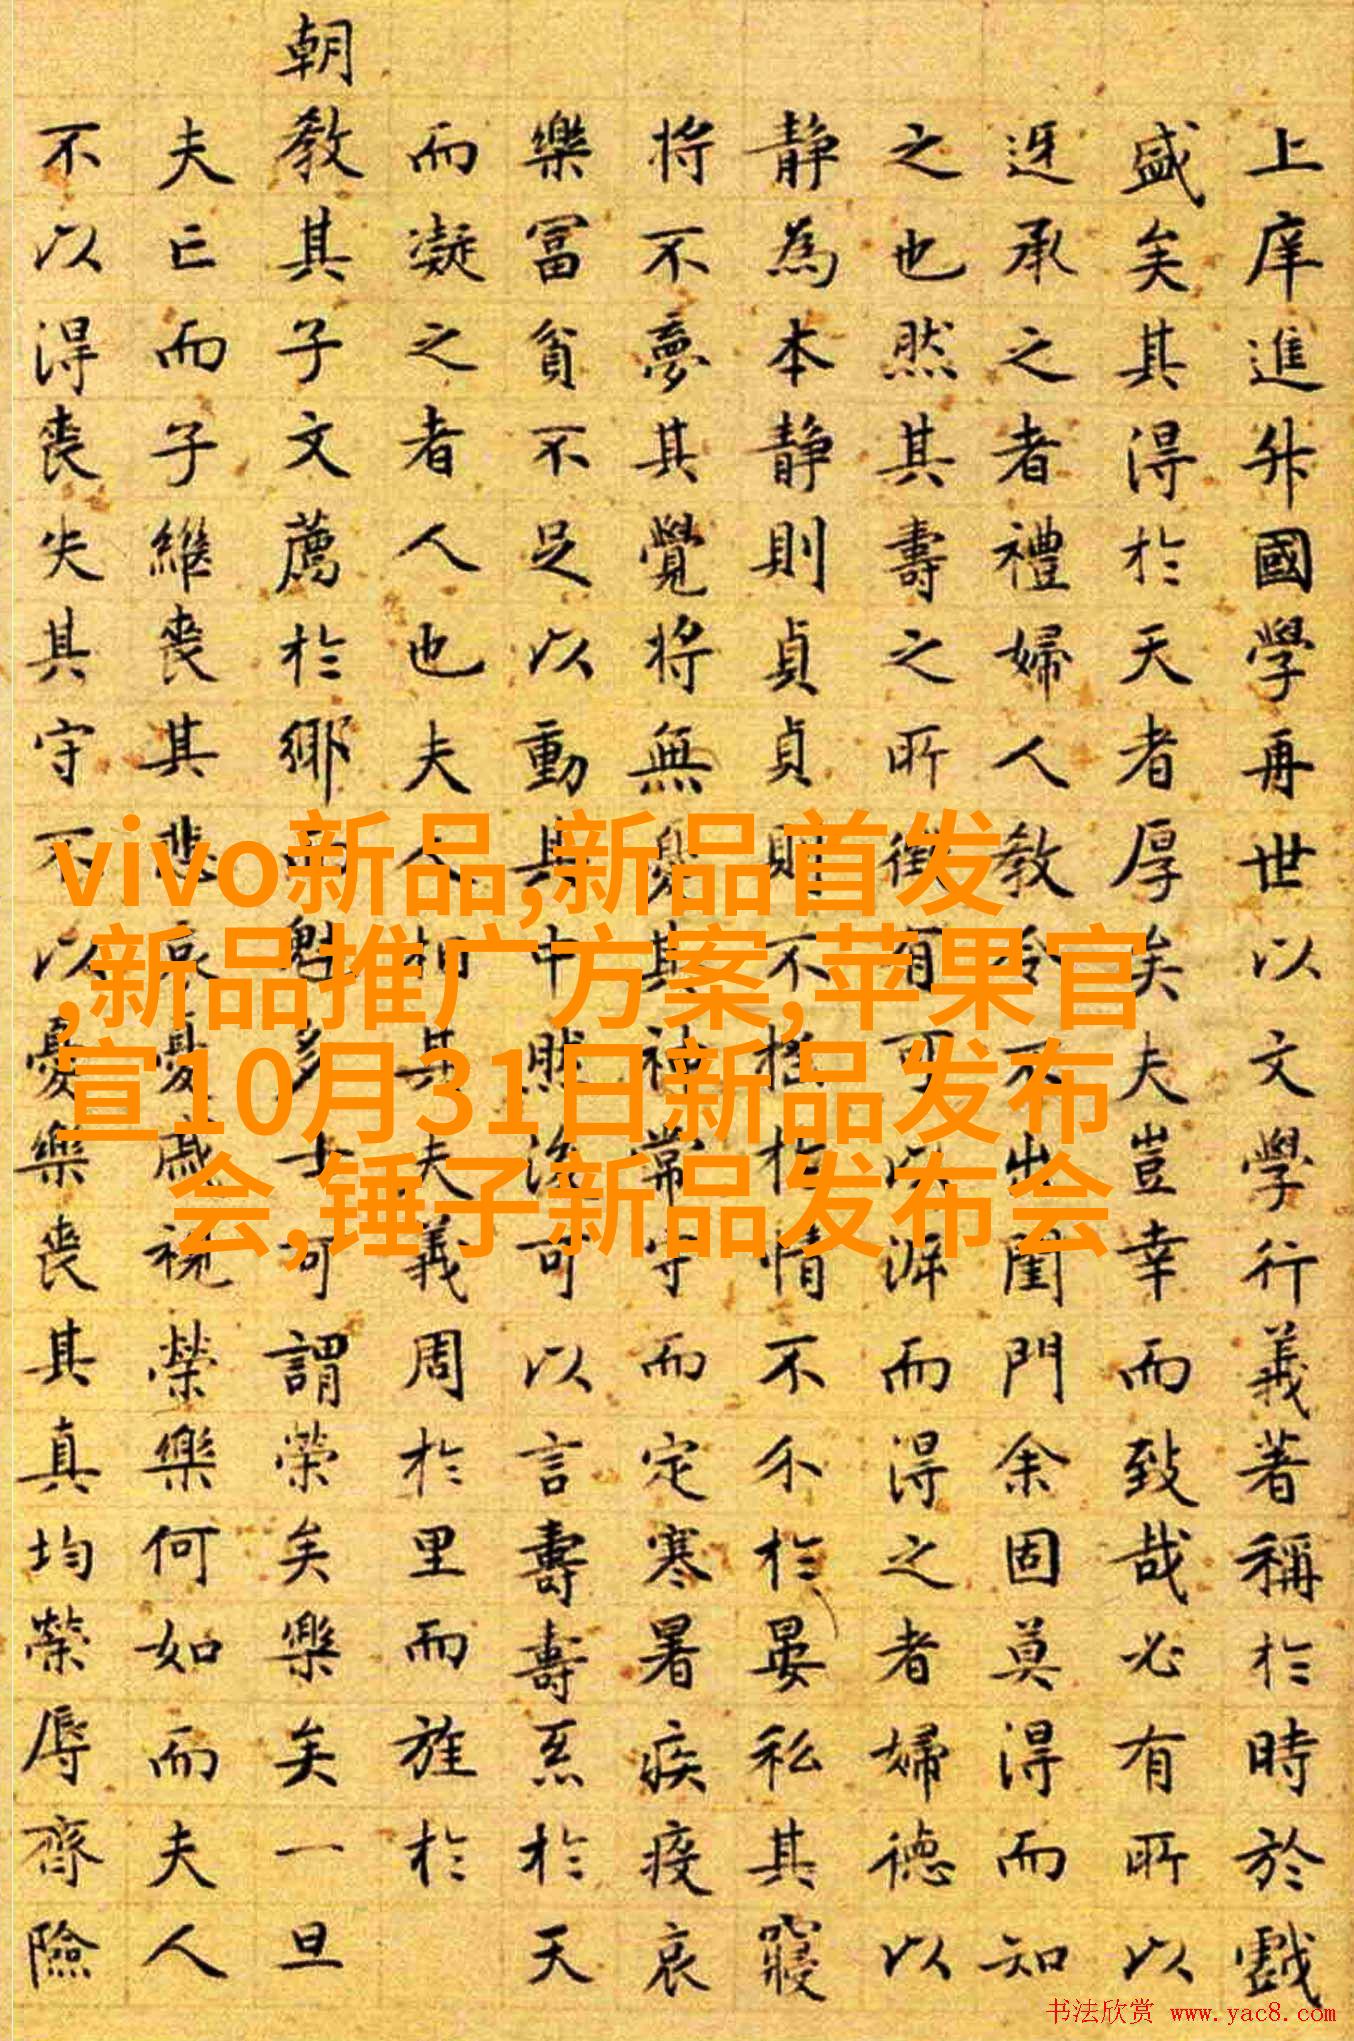 上庠進升國學再世以文學行義著稱於時於戲
盛矣其得於天者厚矣夫豈幸而致哉必有所以
迓承之者禮婦人教令不出閨門余固莫得而知
之也然其壽之所徵有可以而得之者婦德以
靜為本靜則貞貞則不搖於情不分於晏私其寢
將不夢其覺將無憂其神常守而定寒暑疾疫哀
樂冨貧不足以動其中然後可以言壽壽系於天
而凝之者人也夫人相其夫義周於里而旌於
朝教其子文薦於鄉而魁多士可謂榮矣樂矣一旦
夫亡而子繼喪其悲哀憂戚視榮樂何如而夫人
不以得喪失其守不以憂樂喪其真均榮辱齊險
vivo新品,新品首发
,新品推广方案,苹果官
宣10月31日新品发布
会,锤子新品发布会
书法欣赏 www.yac8.com